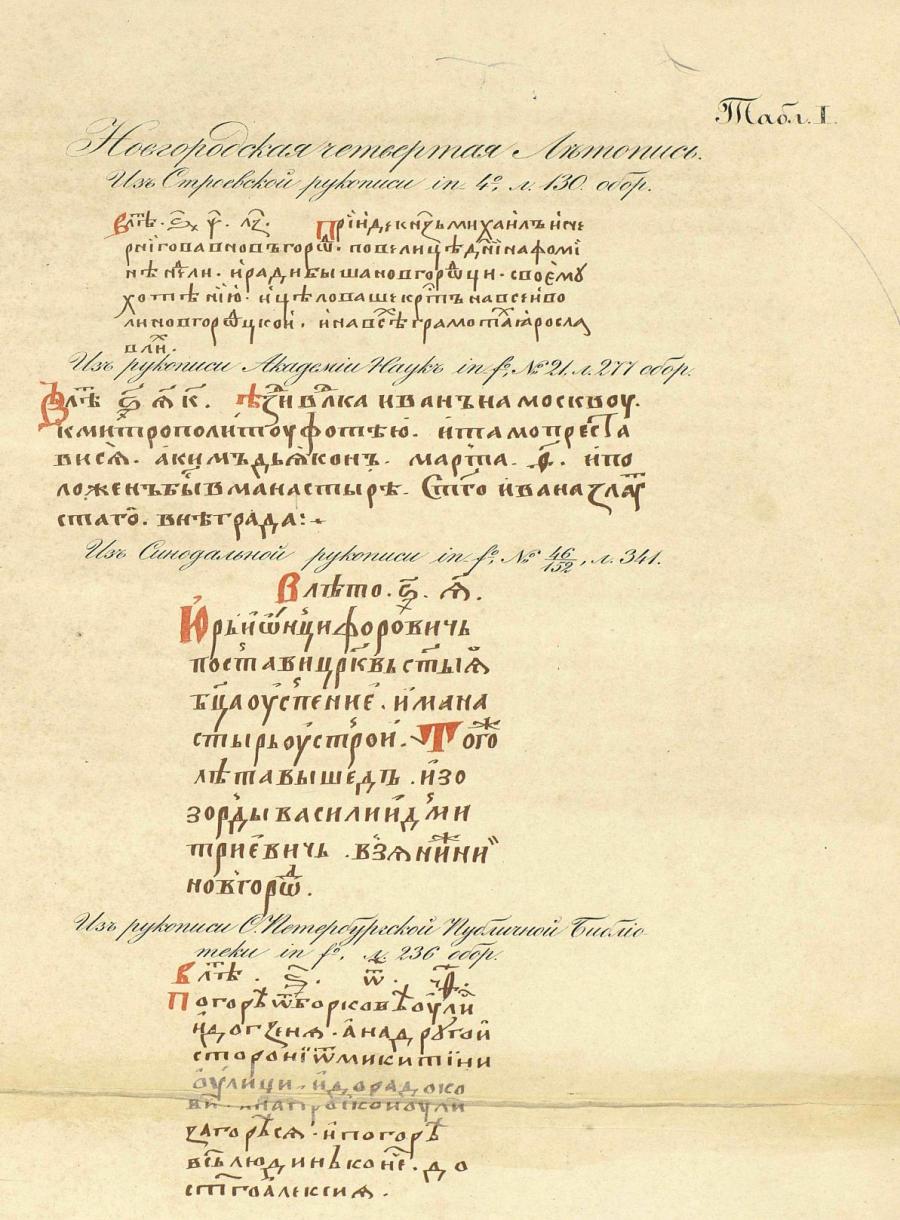 Табл. I.
Новгородская четвертая Лѣтопись.
Изъ Строевской рукописи in 4º, л. 130 обор.
В лтѣ · ҂ѕ҃ · ѱ҃ · лг҃. Прїиде кнзь михаилъ ис че
рнигова в новъгорѡд · по велицѣ дн҃ї на фомі
нѣ нд҃ли · и ради быша новгорѡдци · своємꙋ
хотѣнїю · и цѣловаше крт҃ъ на всеи во
ли новгорѡцкои · и на всѣ грамота ꙗросла
влі.
Изъ рукописи Академіи Наукъ in fº, № 21, л. 277 обор.
В лтѣ ҂ѕ҃ ѧ҃ к҃. ѣзди влдка иванъ на москвоу.
к митрополитоу фотѣю. и тамо преста
висѧ. акимъ дьꙗконъ. марта. и по
ложенъ бы в манастырѣ. Ст҃го ивана злат
стаго. внѣ града :·
Изъ Синодальной рукописи in fº, № 46/152, л. 341.
В лѣто. ҂ѕ҃. ѧ҃.
Юрьи ѡнцифоровичь
постави црк҃вь ст҃ыѧ
бц҃а оуспение. и мана
стырь оустрои. Того ж
лѣта вышедъ. изо
з орды василии дми
триевичь. взѧ нижни
новгорѡд.
Изъ рукописи С. Петербургской Публичной Библіо
теки in fº, л. 236 обор.
В лтѣ. ҂ѕ҃. ѿ.
Погорѣ ѿ борковѣ оули
и до гзенѧ. а на другои
сторонї ѿ микитіни
оулици. и до радоко
ви
загорѣсѧ · и погорѣ
всь людинь коне. до
ст҃го алексиꙗ.